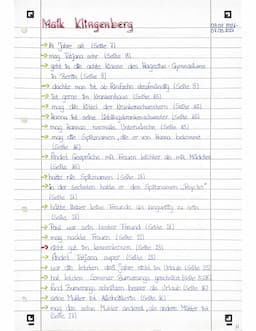 Maik Klingenberg
→ 14 Jahre alt (Seite 7)
→ mag Tatjana sehr (Seite 8)
→ geht in die achte Klasse des Hagecius-Gymnasiums
in Berlin (Seite 8)
→ dachte man ist ab fünfzehn strafmündig (Seite 8)
→ ist gerne im Krankenhaus (Seite
→ mag die Kittel der Krankenschwestern (Seite
→ Hanna ist seine Lieblingskrankenschwester (Seite
→ mag Hannas normale Unterwäsche (Seite
→ mag alle Spitznamen, die er von Hanna bekommt
(Seite
→ findet Gespräche mit Frauen leichter als mit Mädchen
(Seite
→ hatte nie Spitznamen (Seite 21)
→ In der sechsten hatte er den Spitznamen „Psycho"
(Seite 21)
→ hätte lieber keine Freunde als langweilig zu sein
(Seite
→ Paul war sein bester Freund (Seite
→ mag nackte Frauen (Seite
→ gibt gut im kennenlernen (Seite
→ findet Tatjana super (Seite 23)
→ war die letzten drei Jahre nicht im Urlaub (Seite
→ hat letzten Sommer Bumerangs geschnitzt (Seite
→ fand Bumerangs schnitzen besser als Urlaub (Seite
→ seine Mutter ist Alkoholikerin (Seite
→ mag das seine Mutter anders ist als andere Mütter ist
(Seite 27)